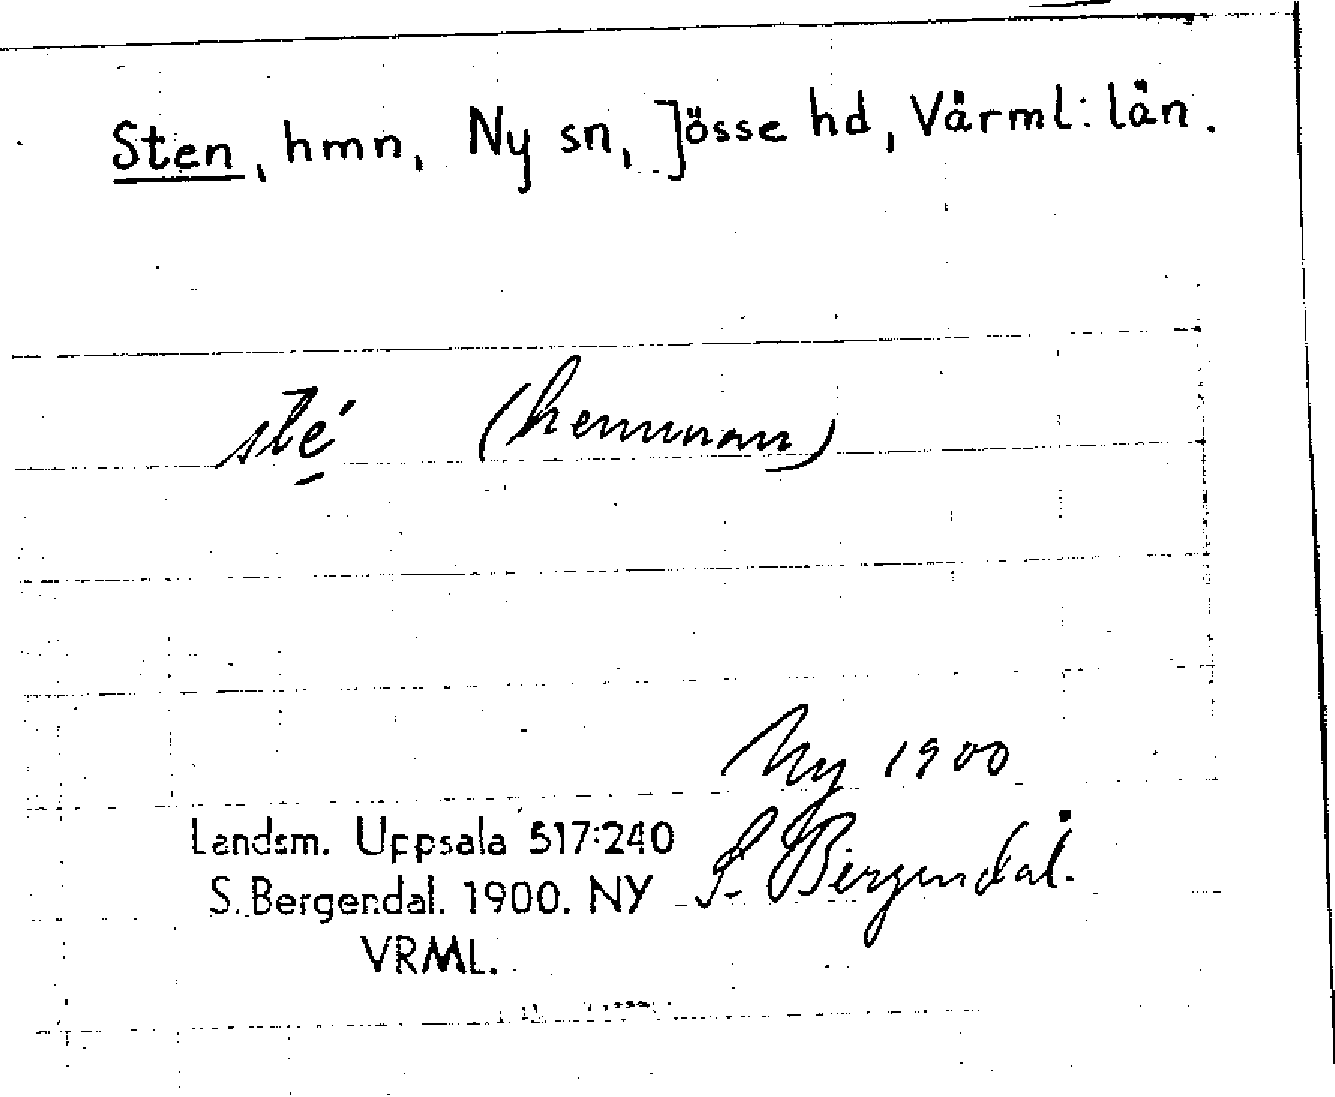 Sten, hmn, Ny sn, Jösse hd, Värml: län.
sté (hemman)
Ny 1900
Landsm. Uppsala 517:240
S. Bergendal.
S. Bergendal. 1900. NY
VRML.